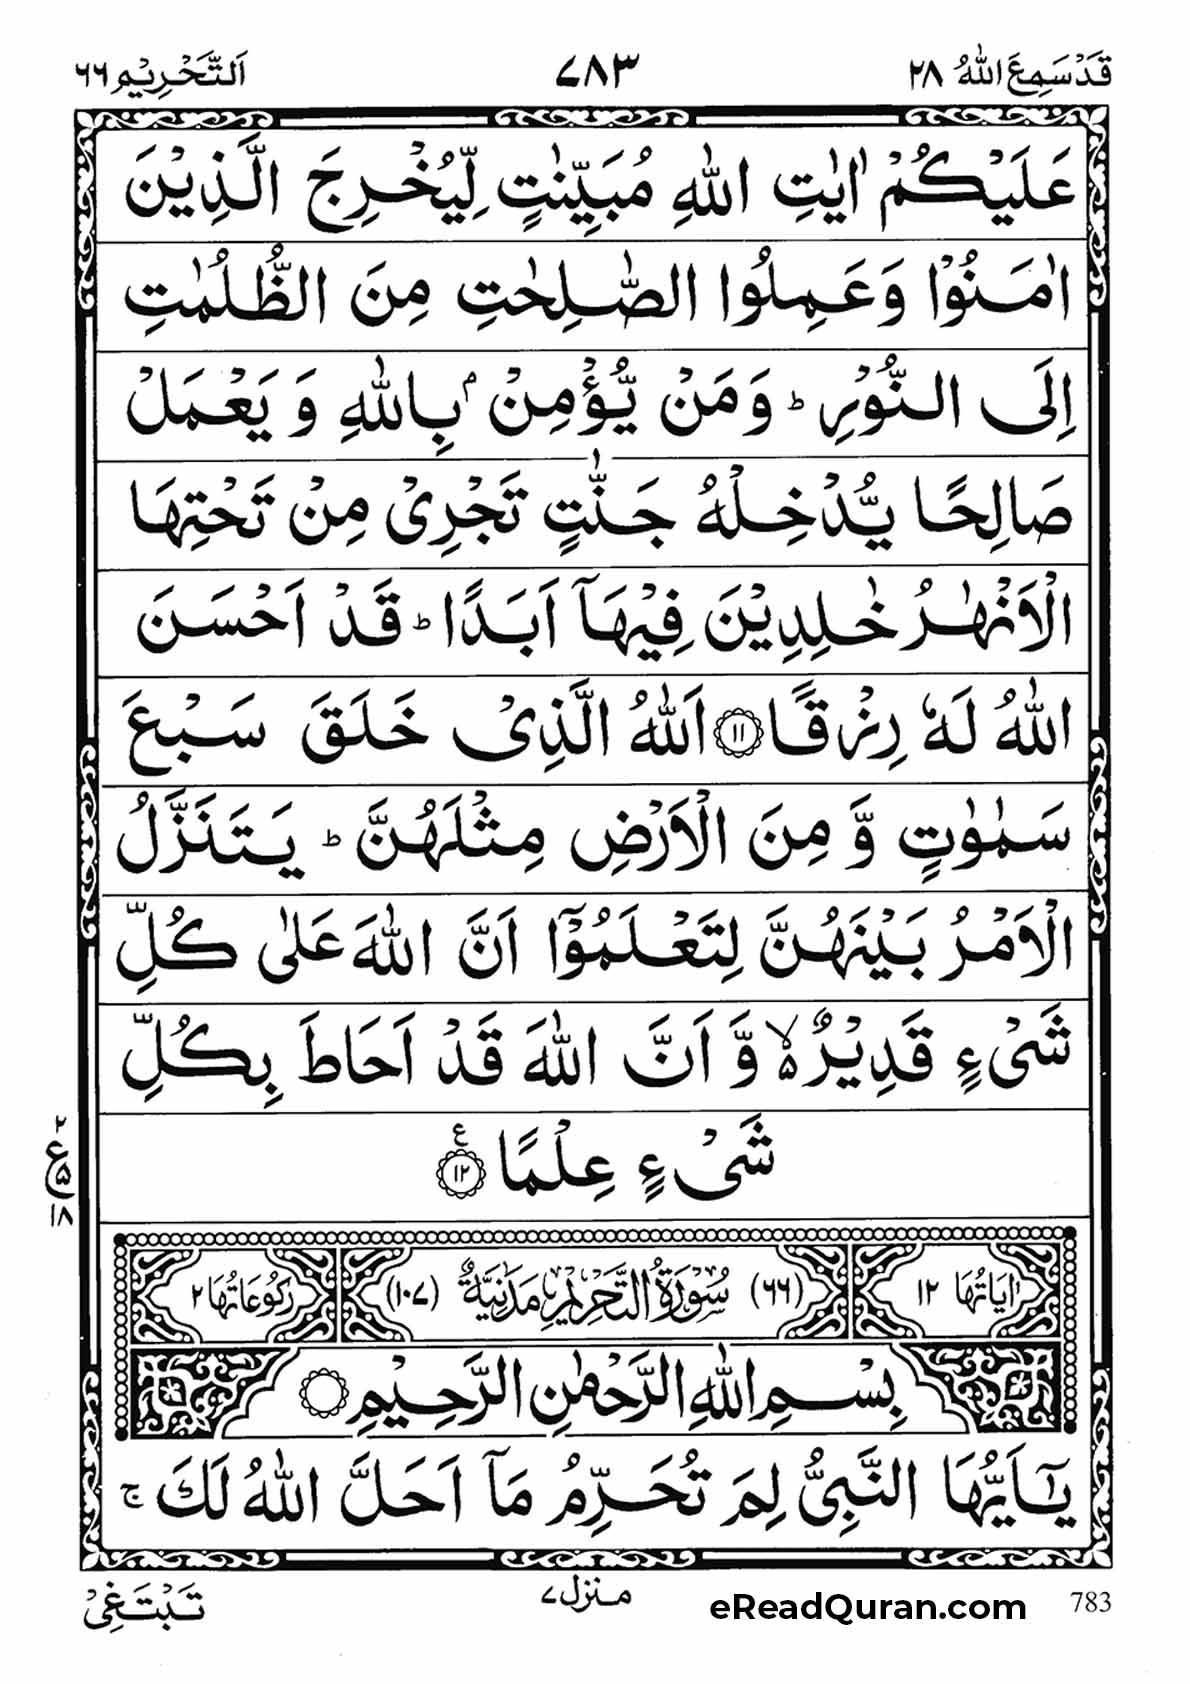 قَدۡسَمِعَ اللّٰهُ ٢٨
٧٨٣
اَلتَّحۡرِیۡمِ ٦٦
عَلَیۡكُمۡ اٰیٰتِ اللّٰهِ مُبَیِّنٰتٍ لِّیُخۡرِجَ الَّذِیۡنَ
اٰمَنُوۡا وَعَمِلُوا الصّٰلِحٰتِ مِنَ الظُّلُمٰتِ
اِلَی النُّوۡرِ ؕ وَمَنۡ یُّؤۡمِنۡۢ بِاللّٰهِ وَ یَعۡمَلۡ
صَالِحًا یُّدۡخِلۡهُ جَنّٰتٍ تَجۡرِیۡ مِنۡ تَحۡتِهَا
الۡاَنۡهٰرُ خٰلِدِیۡنَ فِیۡهَاۤ اَبَدًا ؕ قَدۡ اَحۡسَنَ
اللّٰهُ لَهٗ رِزۡقًا ١١ اَللّٰهُ الَّذِیۡ خَلَقَ سَبۡعَ
سَمٰوٰتٍ وَّ مِنَ الۡاَرۡضِ مِثۡلَهُنَّ ؕ یَتَنَزَّلُ
الۡاَمۡرُ بَیۡنَهُنَّ لِتَعۡلَمُوۡۤا اَنَّ اللّٰهَ عَلٰی كُلِّ
شَیۡءٍ قَدِیۡرٌ ۙ وَّ اَنَّ اللّٰهَ قَدۡ اَحَاطَ بِكُلِّ
شَیۡءٍ عِلۡمًا ١٢ ع
٢ ع ٥ ١٨
اٰیَاتُهَا ١٢
(٦٦) سُوۡرَةُ التَّحۡرِیۡمِ مَدَنِیَّةٌ (١٠٧)
رُكُوۡعَاتُهَا ٢
بِسۡمِ اللّٰهِ الرَّحۡمٰنِ الرَّحِیۡمِ
یٰۤاَیُّهَا النَّبِیُّ لِمَ تُحَرِّمُ مَاۤ اَحَلَّ اللّٰهُ لَكَ ۚ
تَبۡتَغِیۡ
منزل ٧
eReadQuran.com
783